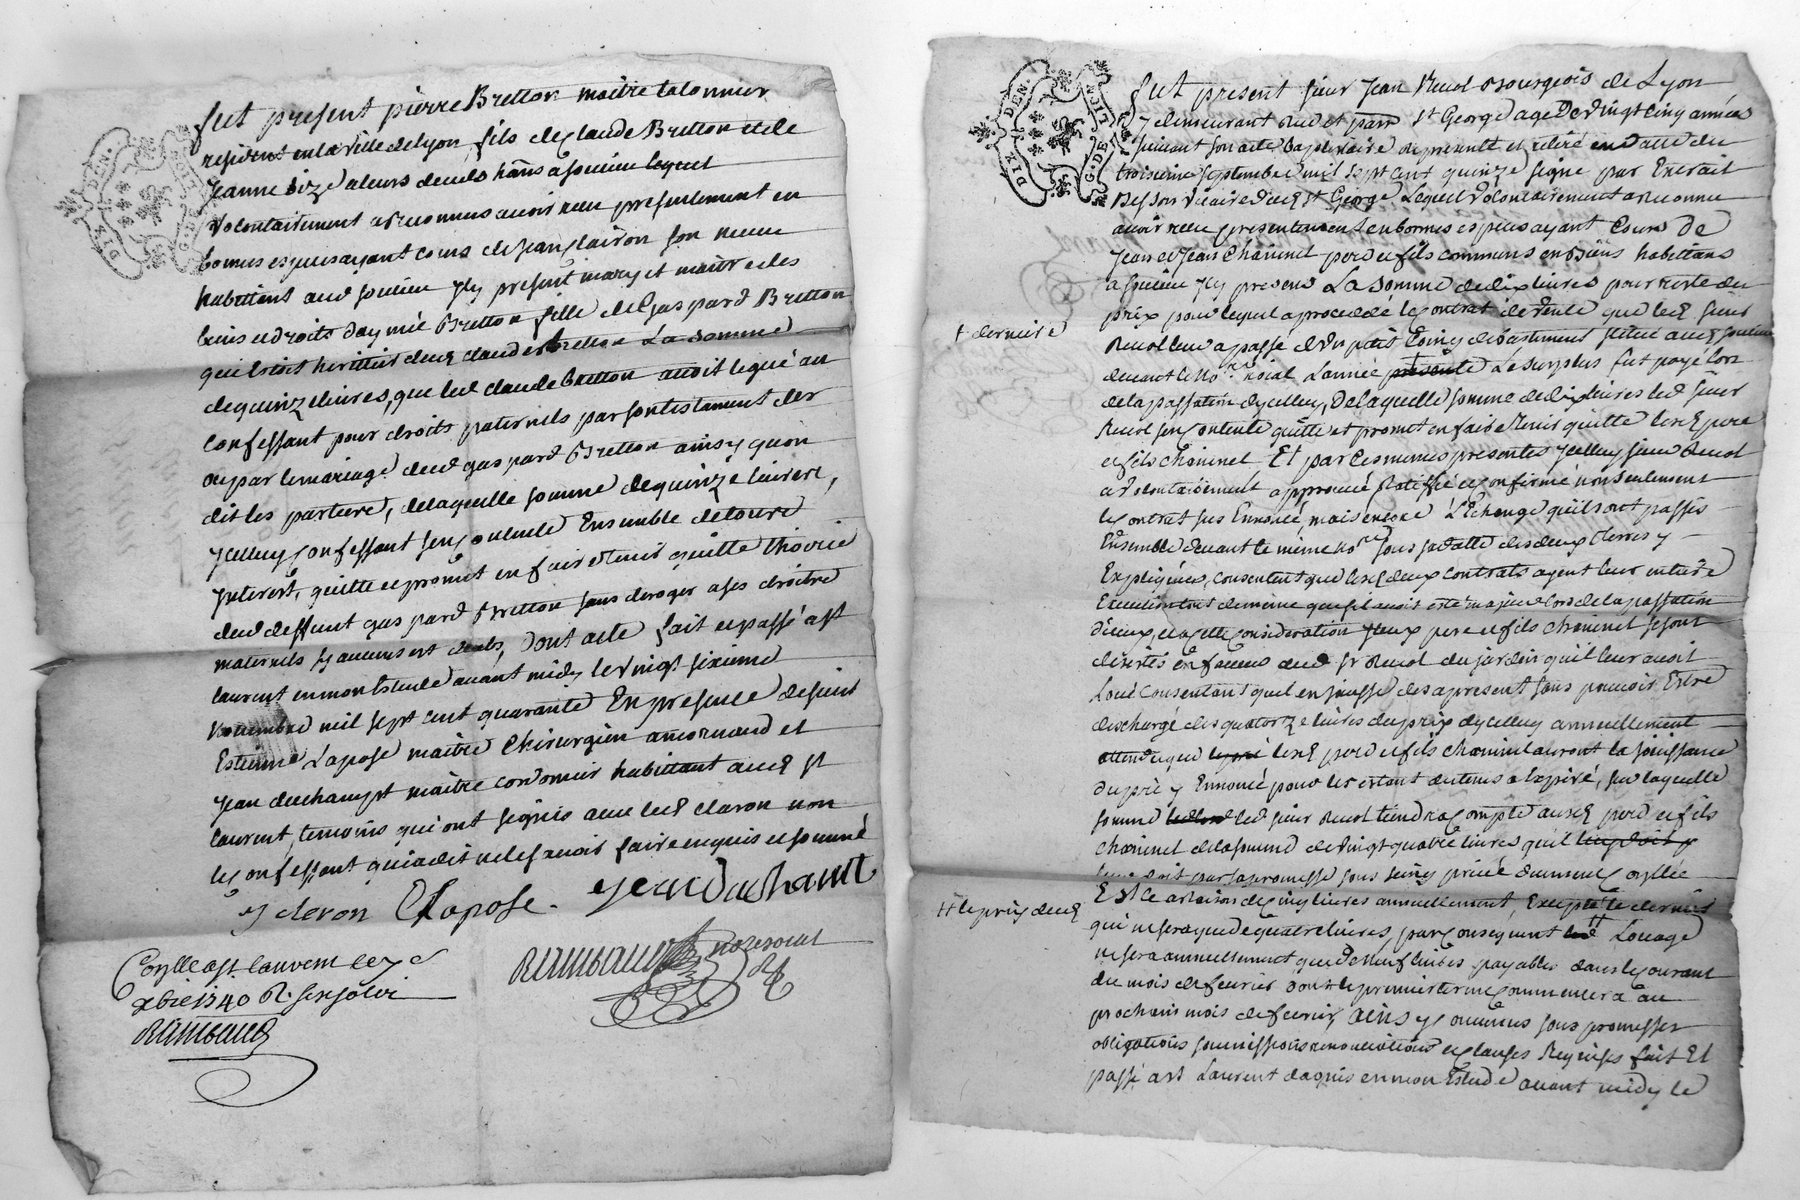 DIX DEN.
G. DE LION
fut present pierre Bretton maitre talonnier
resident en la ville de lyon, fils de claude Bretton et de
jeanne dize a leurs deceds hãns a soucieu lequel
volontairement a reconnu avoir receu presentement en
bonnes especes ayant cours de jean clairon son neveu
habittant aud soucieu icy present mary et maitre des
biens et droits d'aymée Bretton fille de Gaspard Bretton
qui estoit heritier dud claude bretton La somme
de quinze livres, que led claude bretton avoit legué au
confessant pour droits paternels par son testament der
ou par le mariage dud gaspard Bretton ainsy qu'on
dit les parties, de laquelle somme de quinze livres,
icelluy confessant sen contente Ensemble de tous
interest, quitte et promet en faire tenir quitte l'hoirie
dud deffunt gaspard Bretton sans deroger a ses droits
maternels sy aucuns ont deubs, Dont acte fait et passé a st
laurent en mon Estude avant midy le vingt sixieme
Novembre mil sept cent quarante En presence de sieur
Estienne Lapose maitre Chirurgien a mornand et
jean duchampt maitre cordonnier habittant aud st
laurent, temoins qui ont signés avec led claron non
le confessant qui a dit ne le scavoir faire enquis et sommé
j cleron E Lapose. jean Duchamt
Rambaud no.re royal
Con.llé a st laurent le 7e
xbre 1740 R. six sols
Rambaud
DIX DEN.
G. DE LION
fut present sieur Jean Revol Bourgeois de Lyon
y demeurant Rue et parr St George agé De vingt cinq années
suivant son acte baptistaire representé et retiré en datte du
troisieme septembre mil sept cent quinze signé par Extrait
Besson vicaire dud St George Lequel volontairement a reconnu
avoir receu presentement en bonnes especes ayant Cours De
Jean et Jean Chaninel pere et fils communs en biens habittans
a soucieu icy presens La somme de dix livres pour reste du
prix pour lequel a procedé le contrat de vente que led sieur
Revol leur a passé d'un petit Coing de bastiment situé aud soucieu
+ derniere
devant le no.re royal L'année presente + Le surplus fut payé lors
de la passation dycelluy, De laquelle somme de dix livres led sieur
Revol sen contente quitte et promet en faire tenir quitte lesd pere
et fils chaninel Et par ces memes presentes icelluy sieur Revol
a volontairement approuvé Ratiffié et confirmé non seulement
le contrat sus Enoncé, mais encore L'Echange qu'ils ont passés
Ensemble devant le meme no.re sous sa datte des deux Terres y
Expliquées, consentent que lesd deux contrats ayent leur entiere
Execution tout de meme que s'il avoit esté majeur lors de la passation
D'iceux, et a cette Consideration iceux pere et fils chaninel se sont
desistés en faveur dud sr Revol du jardin qu'il leur avoit
Loué Consentant quil en jouisse des a present sans pouvoir Estre
deschargé des quatorze livres du prix dycelluy annuellement
attendu que lesd pere et fils chaninel auront la jouissance
du pré y Ennoncé pour les estant detenus a lapiré, sur laquelle
somme led sieur Revol tiendra Compte auxd pere et fils
chaninel de la somme de vingt quatre livres qu'il leur doit y
leur doit par sa promesse sous seing privé dument Con.llée
Et Ce a raison de cinq livres annuellement, Excepté le dernier
++ le prix dud
qui ne sera que de quatre livres, par Consequent led ++ Louage
ne sera annuellement que De Neuf livres payables dans le courant
du mois de fevrier dont le premier terme Commencera au
prochain mois de fevrier, Ainsy Convenu sous promesses
obligations soumissions renonciations et clauses Requises fait Et
passé a st Laurent dagnis en mon Estude avant midy le